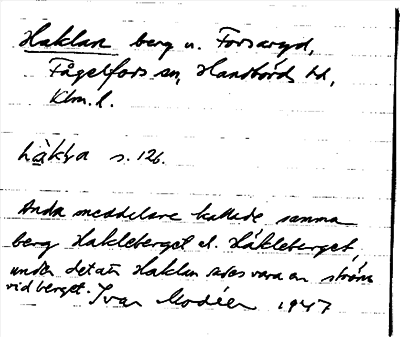 Haklan berg u. Forsaryd,
Fågelfors sn, Handbörds hd,
Klm. l.
Läkta s. 126.
Andra meddelare kallade samma
berg Hakleberget el. Håkleberget,
under det att Haklan sades vara en ström
vid berget. Ivar Modéer 1947